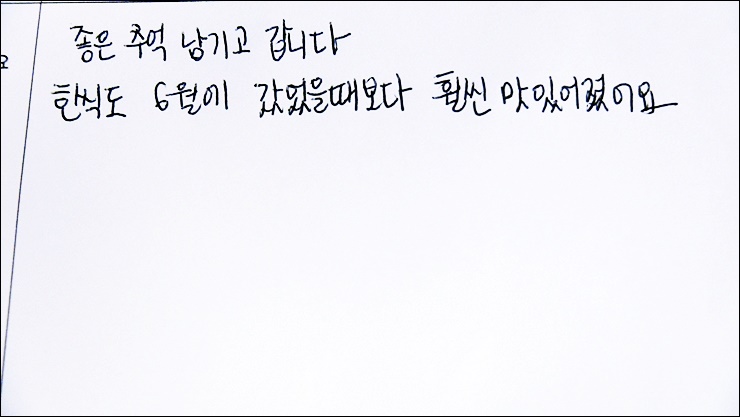 좋은 추억 남기고 갑니다
한식도 6월에 갔었을때보다 훨씬 맛있어졌어요